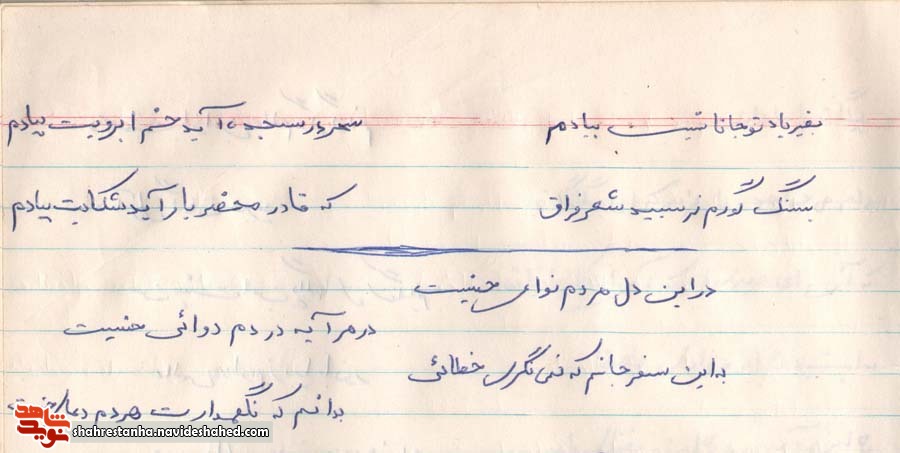 بغیر یاد تو جانا نیست بیادم
سحر در سجده آید خم ابرویت بیادم
بسنگ گورم نویسید شعر فراق
که قادر محضر یار آید شکایت بیادم
در این دل مردم نوای خنیست
در مرآیه در دم دوائی خنیست
به این سفر جانم که نمی نگری خطائی
بدانم که نگهدارت هردم دعای
شاهد
نوید
shahrestanha.navideshahed.com